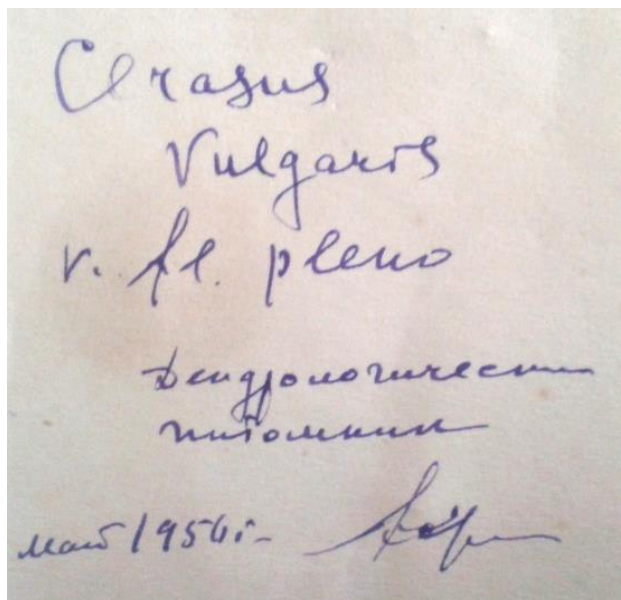 Cerasus
Vulgaris
v. fl. pleno
Дендрологический
питомник
май 1956г.